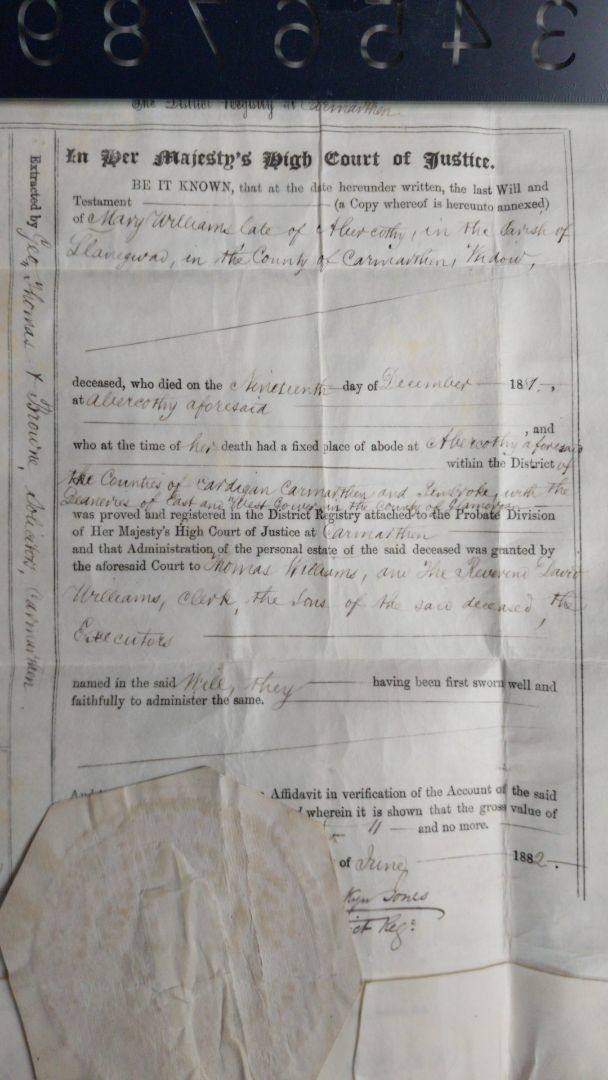 687 9543
The District Registry at Carmarthen
In Her Majesty's High Court of Justice.
BE IT KNOWN, that at the date hereunder written, the last Will and
Testament (a Copy whereof is hereunto annexed)
of Mary Williams late of Abercothy, in the Parish of
Llanegwad, in the County of Carmarthen, Widow,
deceased, who died on the Nineteenth day of December 1881,
at Abercothy aforesaid
, and
who at the time of her death had a fixed place of abode at Abercothy aforesaid
within the District of
the Counties of Cardigan Carmarthen and Pembroke, with the
Deaneries of East and West Gower in the County of Glamorgan
was proved and registered in the District Registry attached to the Probate Division
of Her Majesty's High Court of Justice at Carmarthen
and that Administration of the personal estate of the said deceased was granted by
the aforesaid Court to Thomas Williams, and The Reverend David
Williams, Clerk, the Sons of the said deceased, the
Executors
named in the said Will, they having been first sworn well and
faithfully to administer the same.
Affidavit in verification of the Account of the said
wherein it is shown that the gross value of
11 and no more.
of June 1882.
Jones
ct Regr
Extracted by Geo. Thomas & Browne, Solicitors, Carmarthen